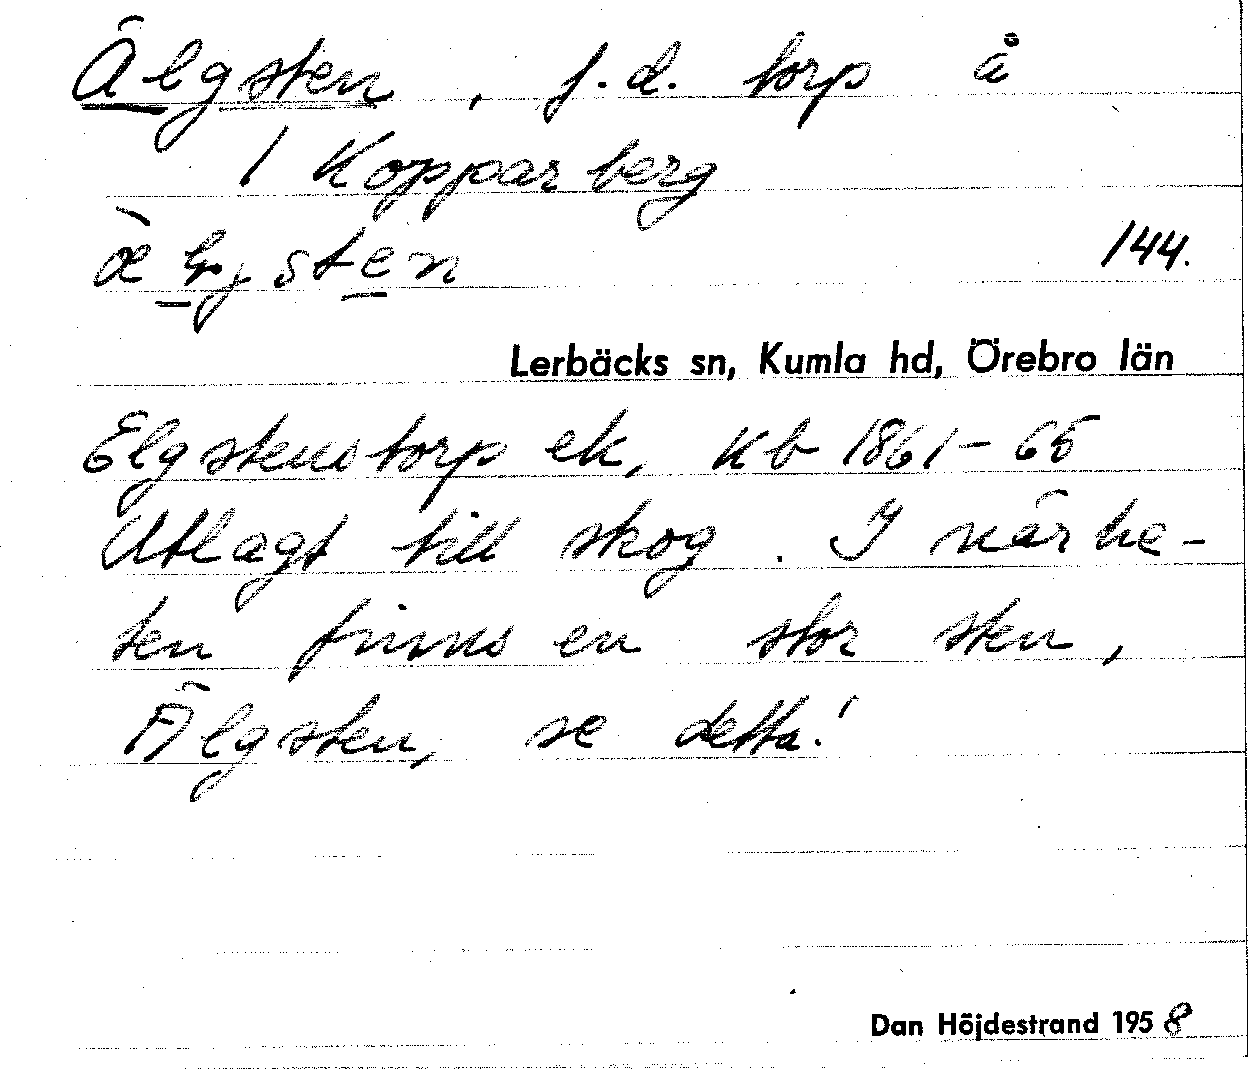 Älgsten, f.d. torp å
1 Kopparberg
144.
Lerbäcks sn, Kumla hd, Örebro län
Elgstenstorp ek, Kb 1861-65
Utlagt till skog. I närhe-
ten finns en stor sten,
Älgsten, se detta!
Dan Höjdestrand 1958